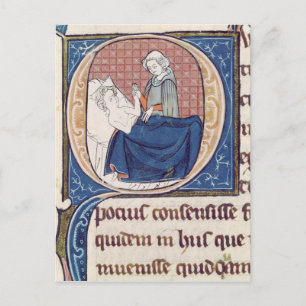 pocius consentisse
quidem in hiis que
inuenisse quidquam